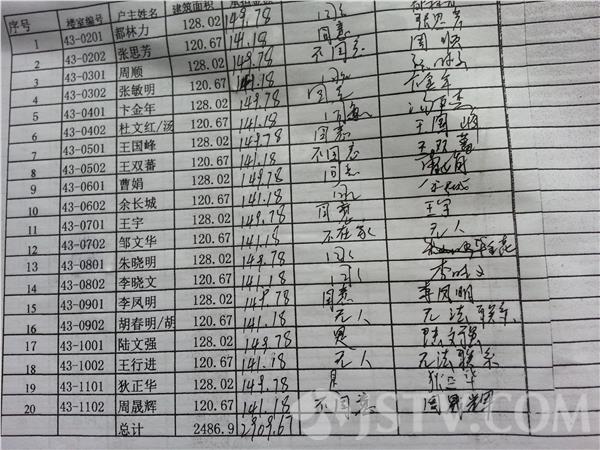 序号 楼室编号 户主姓名 建筑面积
1 43-0201 都林力 128.02 149.78 同意
2 43-0202 张思芳 120.67 141.18 同意 张思芳
3 43-0301 周顺 128.02 149.78 不同意 周顺
4 43-0302 张敏明 120.67 141.18
5 43-0401 卞金年 128.02 149.78 同意 卞金年
6 43-0402 杜文红/汤 120.67 141.18 同意
7 43-0501 王国峰 128.02 149.78 同意 王国峰
8 43-0502 王双蕃 120.67 141.18 不同意 王双蕃
9 43-0601 曹娟 128.02 149.78 同意 曹娟
10 43-0602 余长城 120.67 141.18
11 43-0701 王宇 128.02 149.78 同意 王宇
12 43-0702 邹文华 120.67 141.18 不在家 无人
13 43-0801 朱晓明 128.02 149.78
14 43-0802 李晓文 120.67 141.18 李晓文
15 43-0901 李凤明 128.02 149.78 同意 李凤明
16 43-0902 胡春明/胡 120.67 141.18 无人 无法联系
17 43-1001 陆文强 128.02 149.78 陆文强
18 43-1002 王行进 120.67 141.18 无人 无法联系
19 43-1101 狄正华 128.02 149.78 狄正华
20 43-1102 周晟辉 120.67 141.18 不同意 周晟辉
总计 2486.9 2909.67
JSTV.COM